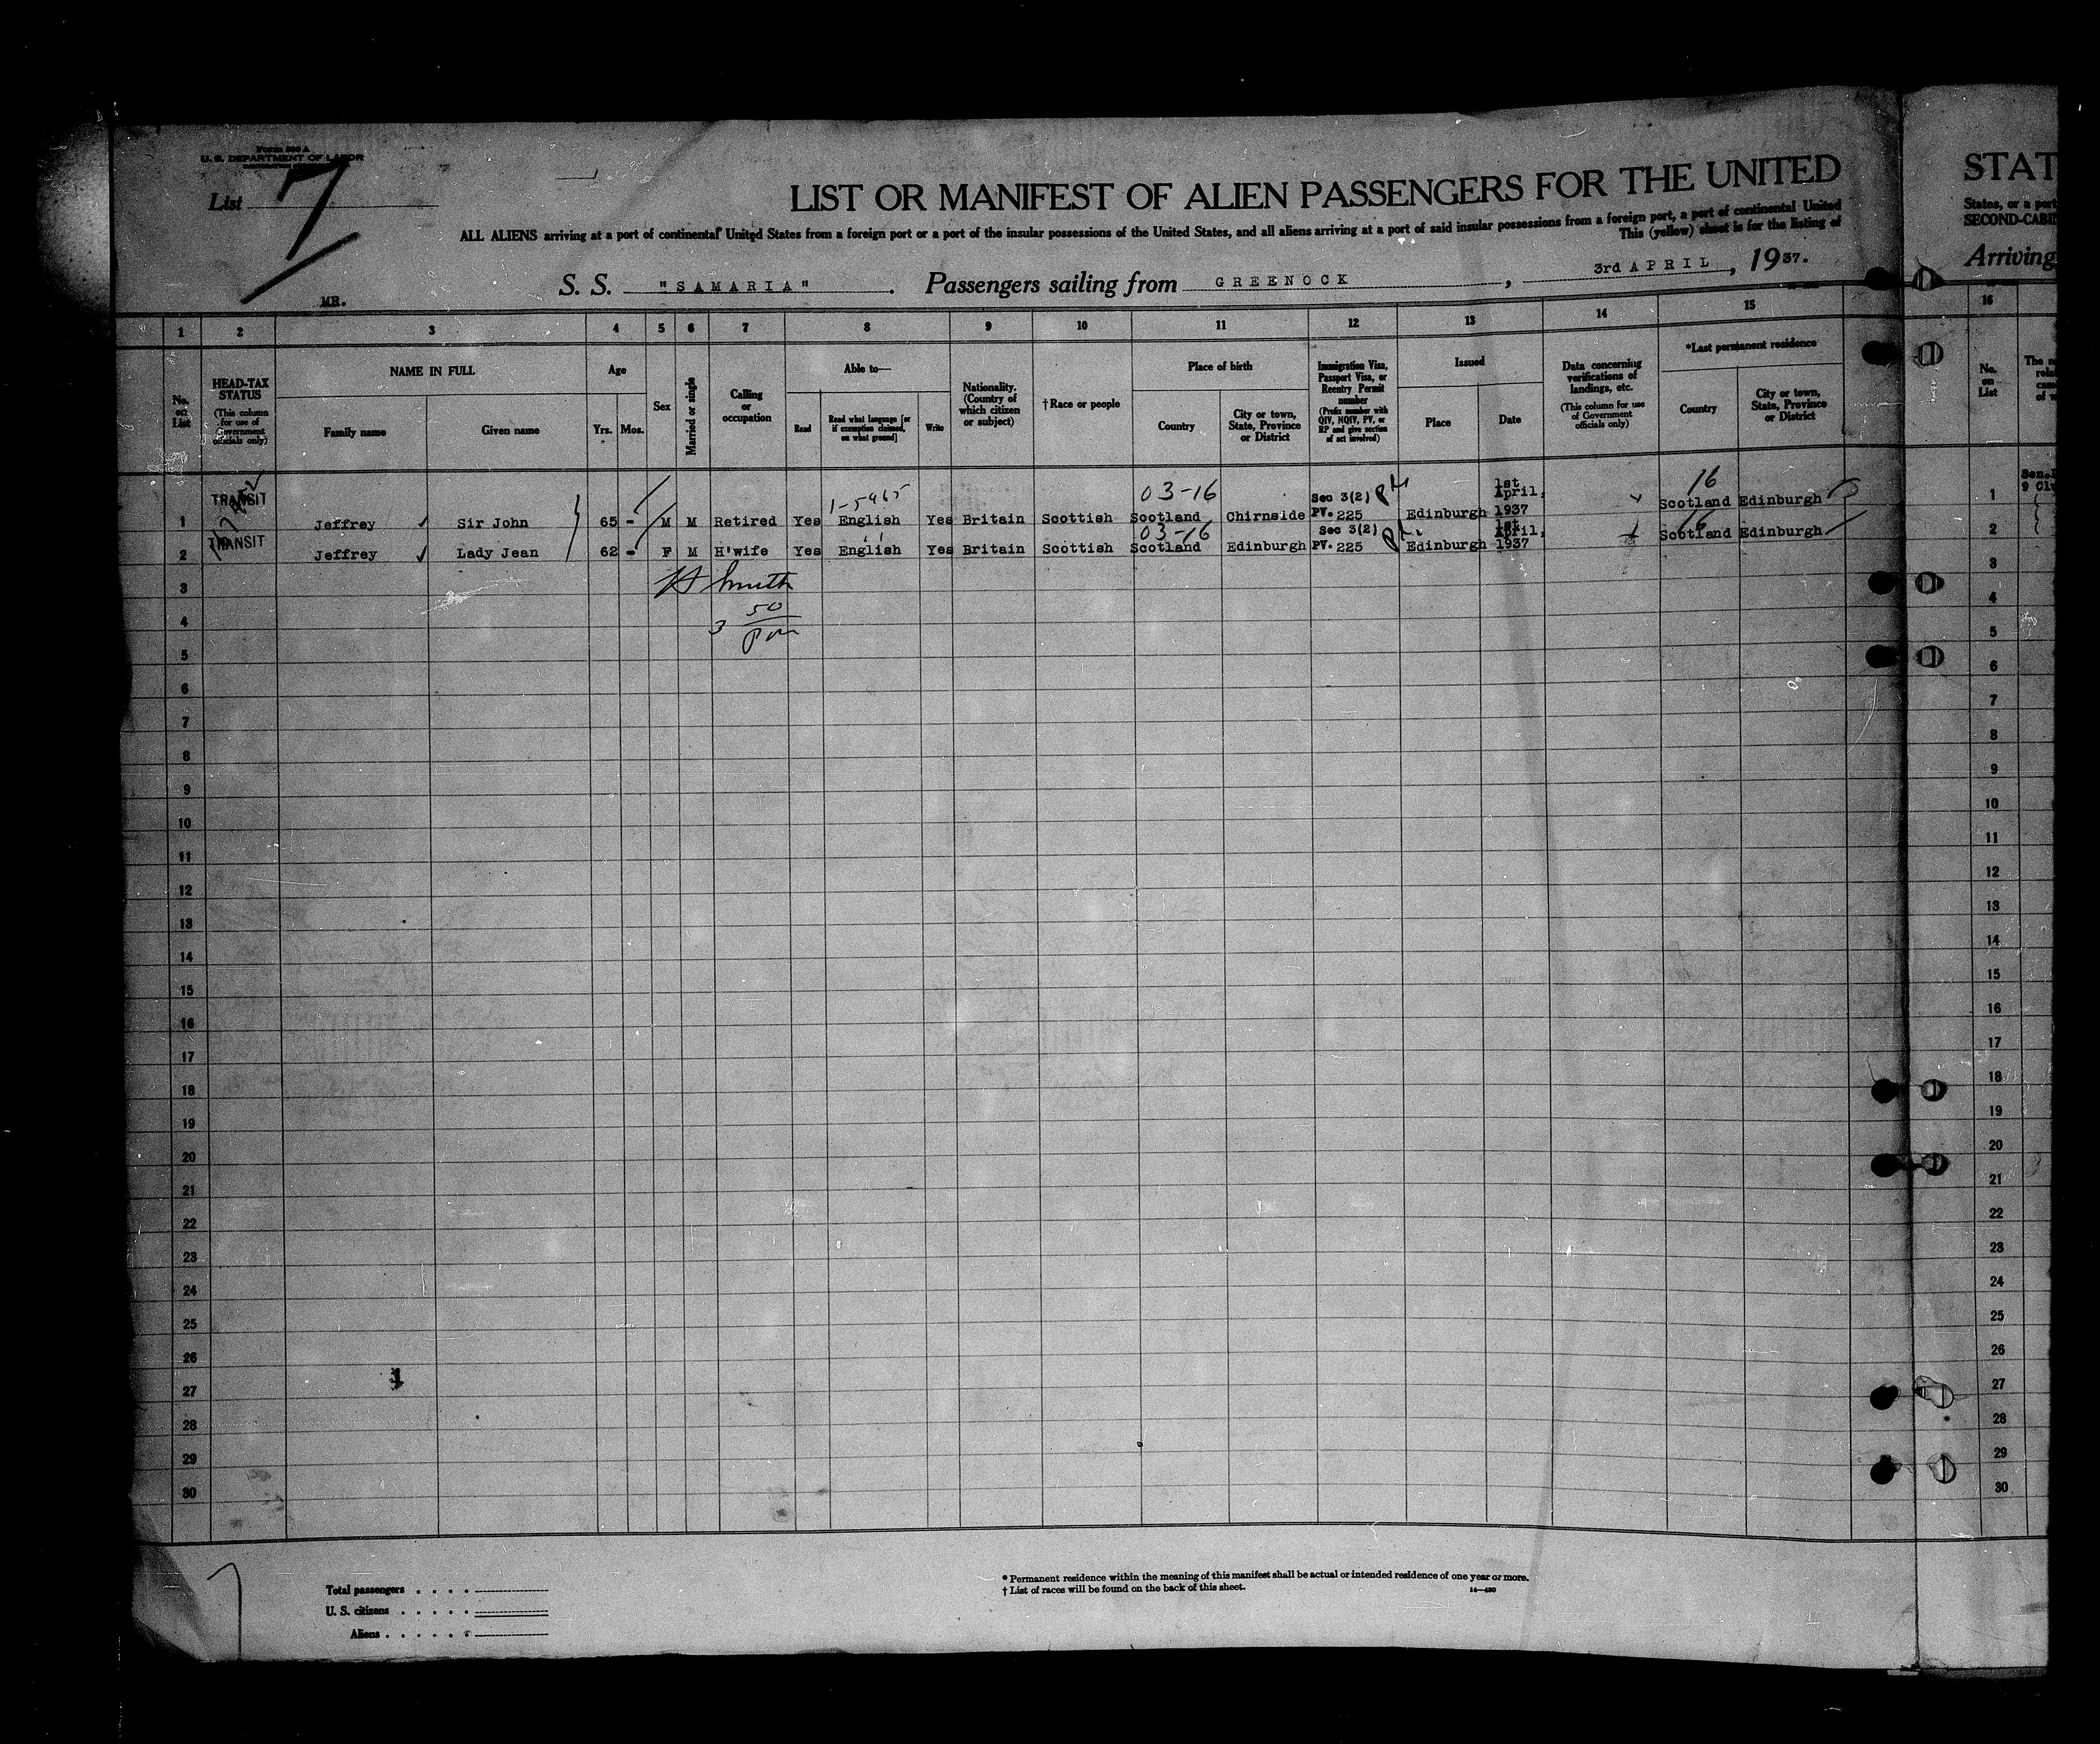 Form 500 A
U. S. DEPARTMENT OF LABOR
List 7
STAT
LIST OR MANIFEST OF ALIEN PASSENGERS FOR THE UNITED
States, or a port
ALL ALIENS arriving at a port of continental United States from a foreign port or a port of the insular possessions of the United States, and all aliens arriving at a port of said insular possessions from a foreign port, a port of continental United
SECOND-CABI
This (yellow) sheet is for the listing of
S. S. "SAMARIA". Passengers sailing from GREENOCK, 3rd APRIL, 1937.
Arriving
MR.
1 2 3 4 5 6 7 8 9 10 11 12 13 14 15 16
No. on List
HEAD-TAX STATUS
(This column for use of Government officials only)
NAME IN FULL
Family name
Given name
Age
Yrs. Mos.
Sex
Married or single
Calling or occupation
Able to—
Read
Read what language [or if exemption claimed, on what ground]
Write
Nationality. (Country of which citizen or subject)
†Race or people
Place of birth
Country
City or town, State, Province or District
Immigration Visa, Passport Visa, or Reentry Permit number
(Prefix number with QIV, NQIV, PV, or RP and give section of act involved)
Issued
Place
Date
Data concerning verifications of landings, etc.
(This column for use of Government officials only)
*Last permanent residence
Country
City or town, State, Province or District
No. on List
TRANSIT 1-5965 03-16 Sec 3(2) 1st April, 16
1 Jeffrey Sir John 65 - M M Retired Yes English Yes Britain Scottish Scotland Chirnside PV. 225 Edinburgh 1937 Scotland Edinburgh 1
TRANSIT 03-16 Sec 3(2) 1st April, 16
2 Jeffrey Lady Jean 62 - F M H'wife Yes English Yes Britain Scottish Scotland Edinburgh PV. 225 Edinburgh 1937 Scotland Edinburgh 2
3 H Smith 3
4 3 50 pm 4
5 5
6 6
7 7
8 8
9 9
10 10
11 11
12 12
13 13
14 14
15 15
16 16
17 17
18 18
19 19
20 20
21 21
22 22
23 23
24 24
25 25
26 26
27 27
28 28
29 29
30 30
Total passengers
U. S. citizens
Aliens
* Permanent residence within the meaning of this manifest shall be actual or intended residence of one year or more.
† List of races will be found on the back of this sheet.
14—430